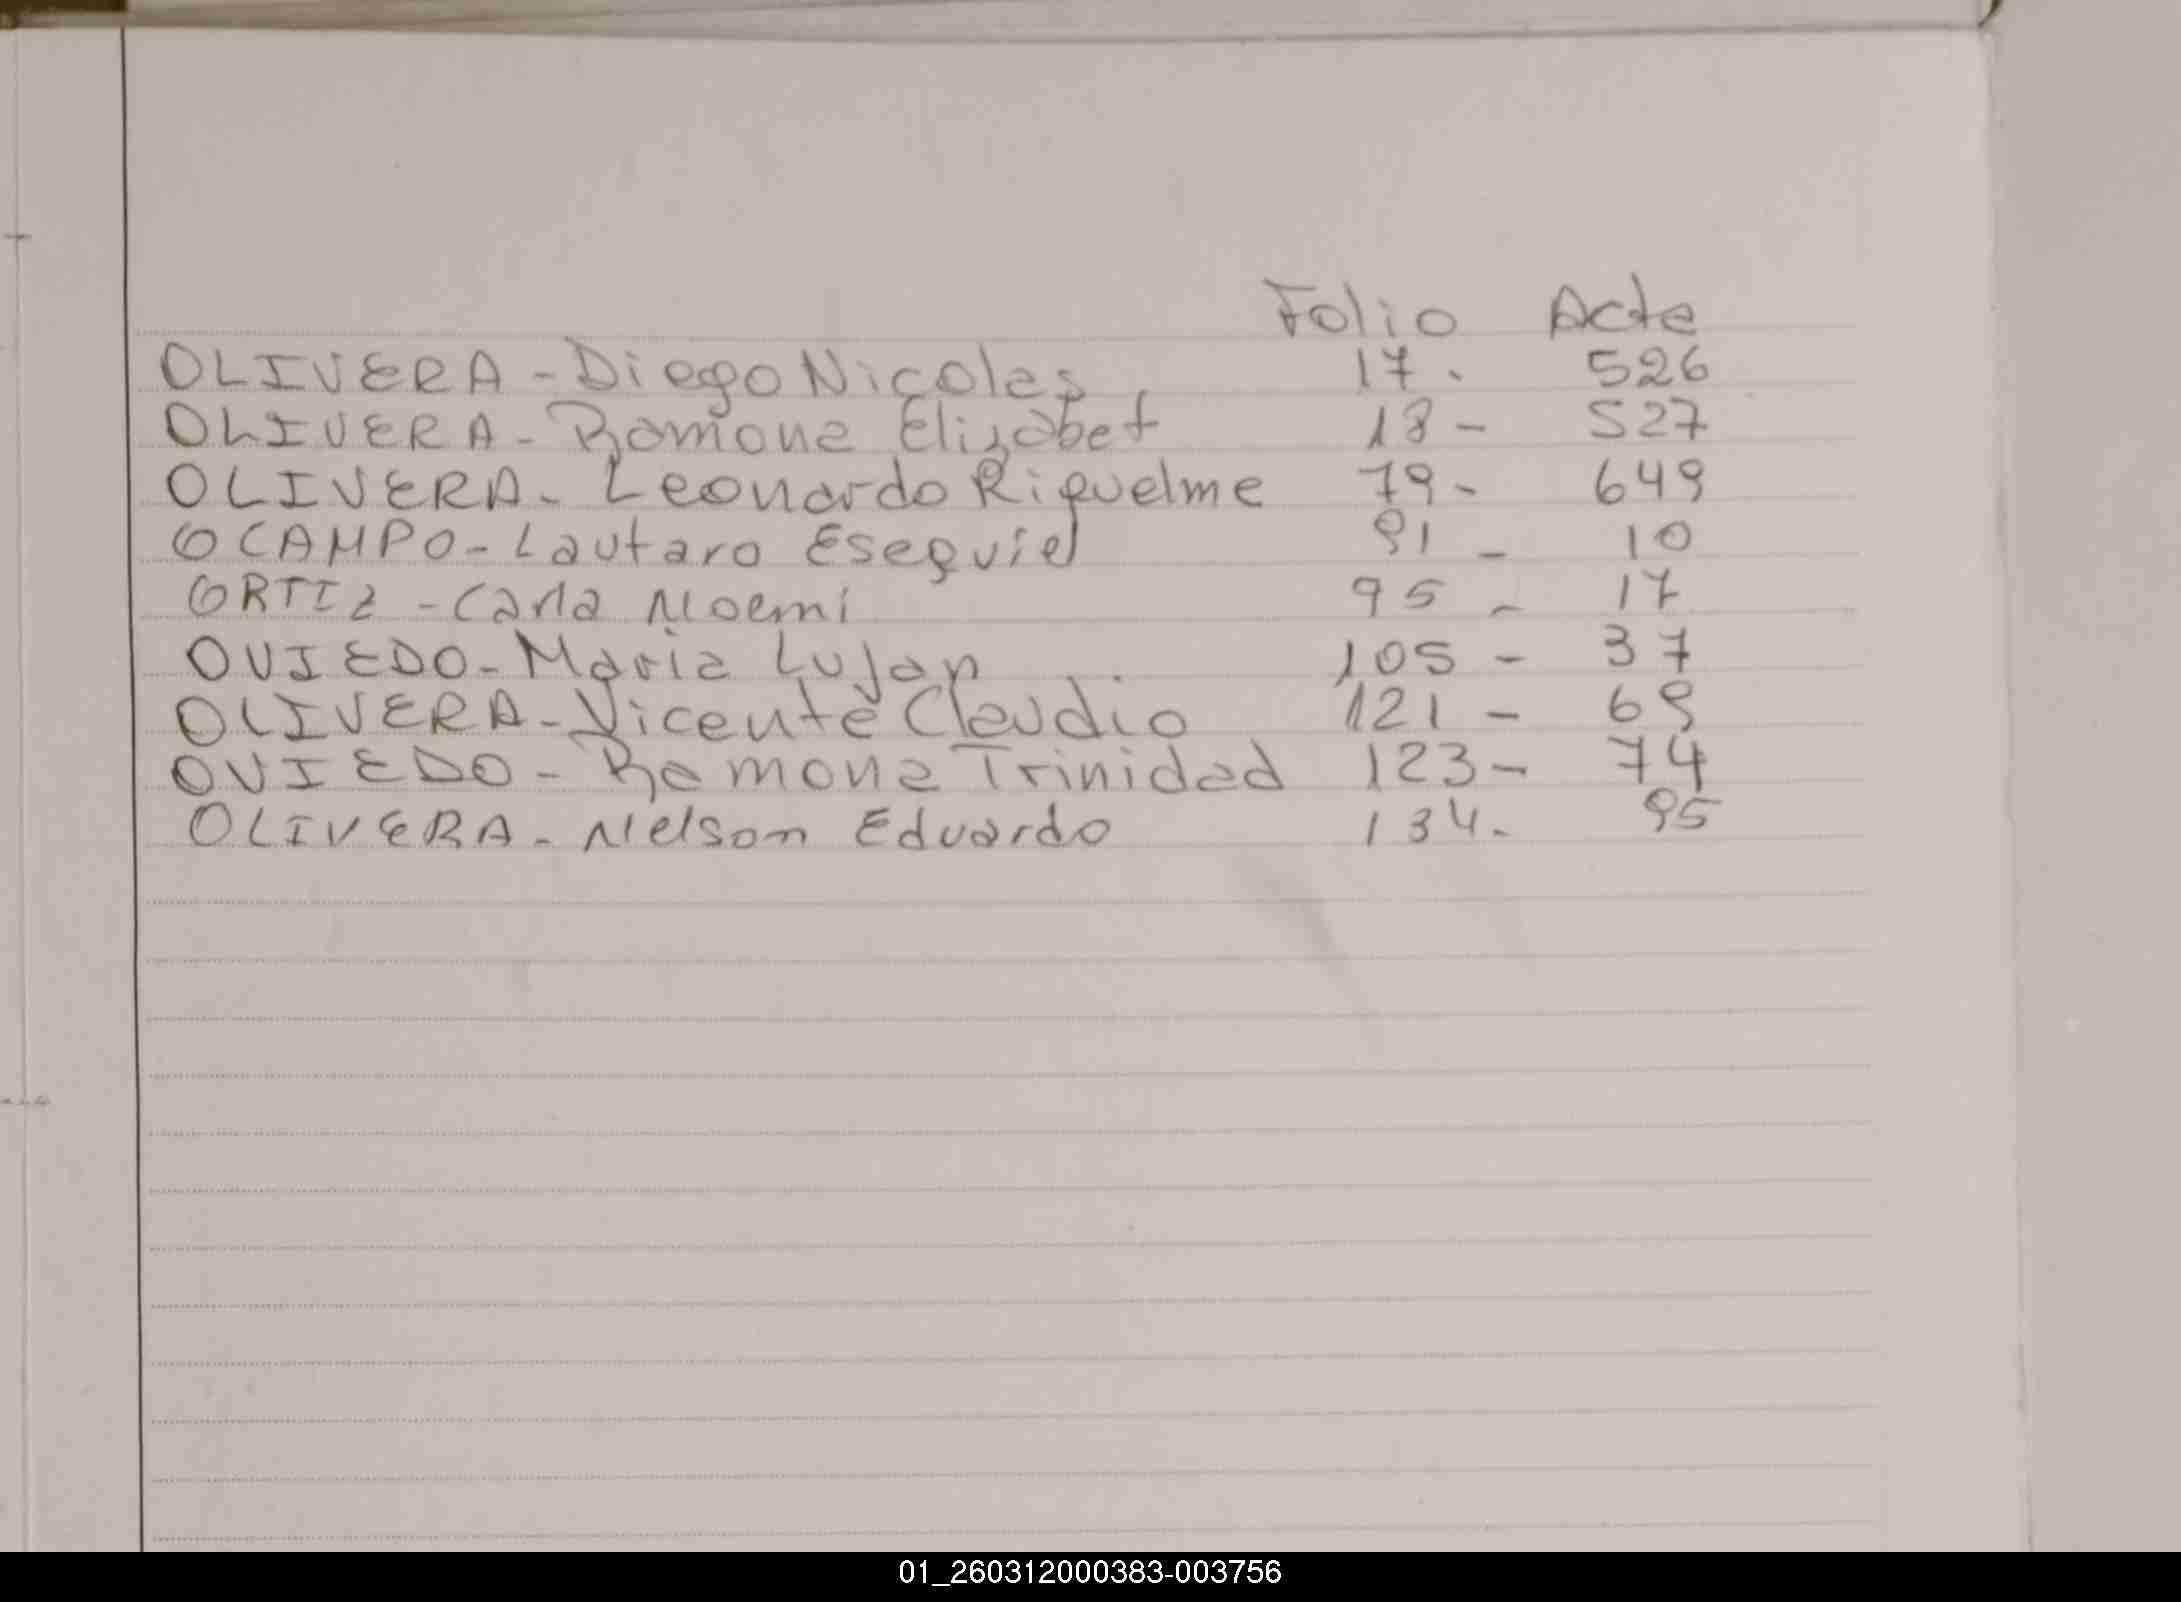 Folio Acta
OLIVERA - Diego Nicolas 17. 526
OLIVERA - Ramona Elizabet 18 - 527
OLIVERA - Leonardo Riquelme 79 - 649
OCAMPO - Lautaro Esequiel 91 - 10
ORTIZ - Carla Noemi 95 - 17
OVIEDO - Maria Lujan 105 - 37
OLIVERA - Vicente Claudio 121 - 69
OVIEDO - Ramona Trinidad 123 - 74
OLIVERA - Nelson Eduardo 134 - 95
01_260312000383-003756